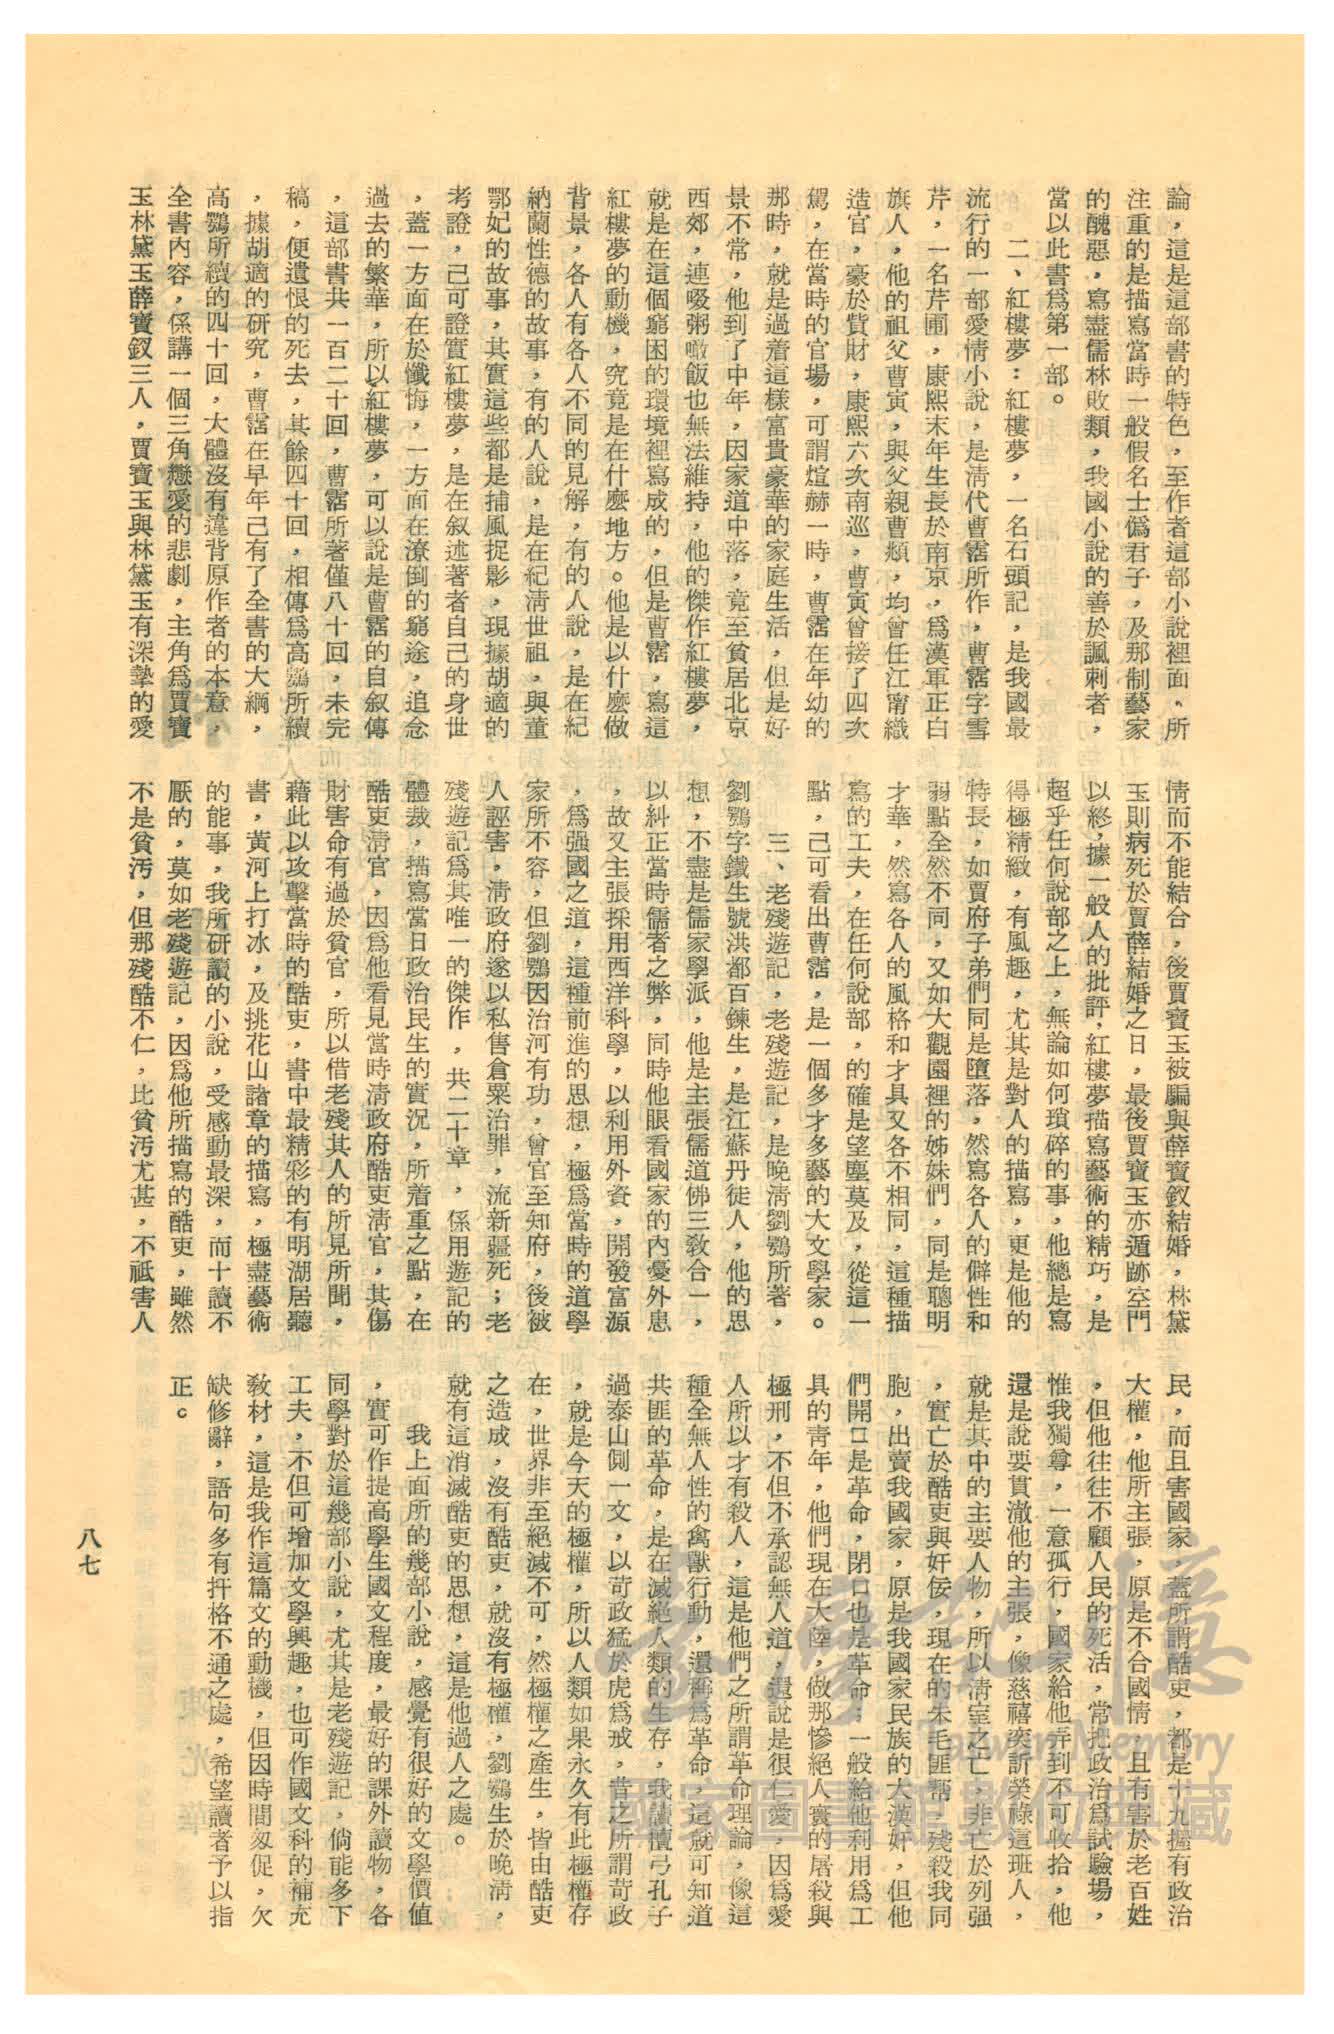 論，這是這部書的特色，至作者這部小說裡面，所
注重的是描寫當時一般假名士僞君子，及那制藝家
的醜惡，寫盡儒林敗類，我國小說的善於諷刺者，
當以此書爲第一部。
二、紅樓夢：紅樓夢，一名石頭記，是我國最
流行的一部愛情小說，是清代曹霑所作，曹霑字雪
芹，一名芹圃，康熙末年生長於南京，爲漢軍正白
旗人，他的祖父曹寅，與父親曹頫，均曾任江甯織
造官，豪於貲財，康熙六次南巡，曹寅曾接了四次
駕，在當時的官場，可謂煊赫一時，曹霑在年幼的
那時，就是過着這樣富貴豪華的家庭生活，但是好
景不常，他到了中年，因家道中落，竟至貧居北京
西郊，連啜粥噉飯也無法維持，他的傑作紅樓夢，
就是在這個窮困的環境裡寫成的，但是曹霑，寫這
紅樓夢的動機，究竟是在什麼地方。他是以什麼做
背景，各人有各人不同的見解，有的人說，是在紀
納蘭性德的故事，有的人說，是在紀清世祖，與董
鄂妃的故事，其實這些都是捕風捉影，現據胡適的
考證，已可證實紅樓夢，是在叙述著者自己的身世
，蓋一方面在於懺悔，一方面在潦倒的窮途，追念
過去的繁華，所以紅樓夢，可以說是曹霑的自叙傳
，這部書共一百二十回，曹霑所著僅八十回，未完
稿，便遺恨的死去，其餘四十回，相傳爲高鶚所續
，據胡適的研究，曹霑在早年己有了全書的大綱，
高鶚所續的四十回，大體沒有違背原作者的本意，
全書內容，係講一個三角戀愛的悲劇，主角爲賈寶
玉林黛玉薛寶釵三人，賈寶玉與林黛玉有深摯的愛
情而不能結合，後賈寶玉被騙與薛寶釵結婚，林黛
玉則病死於賈薛結婚之日，最後賈寶玉亦遁跡空門
以終，據一般人的批評，紅樓夢描寫藝術的精巧，是
超乎任何說部之上，無論如何瑣碎的事，他總是寫
得極精緻，有風趣，尤其是對人的描寫，更是他的
特長，如賈府子弟們同是墮落，然寫各人的僻性和
弱點全然不同，又如大觀園裡的姊妹們，同是聰明
才華，然寫各人的風格和才具又各不相同，這種描
寫的工夫，在任何說部，的確是望塵莫及，從這一
點，己可看出曹霑，是一個多才多藝的大文學家。
三、老殘遊記，老殘遊記，是晚清劉鶚所著，
劉鶚字鐵生號洪都百鍊生，是江蘇丹徒人，他的思
想，不盡是儒家學派，他是主張儒道佛三敎合一，
以糾正當時儒者之弊，同時他眼看國家的內憂外患
，故又主張採用西洋科學，以利用外資，開發富源
，爲强國之道，這種前進的思想，極爲當時的道學
家所不容，但劉鶚因治河有功，曾官至知府，後被
人誣害，清政府遂以私售倉粟治罪，流新疆死；老
殘遊記爲其唯一的傑作，共二十章，係用遊記的
體裁，描寫當日政治民生的實況，所着重之點，在
酷吏清官，因爲他看見當時清政府酷吏清官，其傷
財害命有過於貪官，所以借老殘其人的所見所聞，
藉此以攻擊當時的酷吏，書中最精彩的有明湖居聽
書，黃河上打冰，及挑花山諸章的描寫，極盡藝術
的能事，我所研讀的小說，受感動最深，而十讀不
厭的，莫如老殘遊記，因爲他所描寫的酷吏，雖然
不是貧污，但那殘酷不仁，比貧污尤甚，不祇害人
民，而且害國家，蓋所謂酷吏，都是十九握有政治
大權，他所主張，原是不合國情，且有害於老百姓
，但他往往不顧人民的死活，常把政治爲試驗場，
惟我獨尊，一意孤行，國家給他弄到不可收拾，他
還是說要貫澈他的主張，像慈禧奕訢榮祿這班人，
就是其中的主要人物，所以清室之亡，非亡於列强
，實亡於酷吏與奸佞，現在的朱毛匪幫，殘殺我同
胞，出賣我國家，原是我國家民族的大漢奸，但他
們開口是革命，閉口也是革命；一般給他利用爲工
具的青年，他們現在大陸，做那慘絕人寰的屠殺與
極刑，不但不承認無人道，還說是很仁愛，因爲愛
人所以才有殺人，這是他們之所謂革命理論，像這
種全無人性的禽獸行動，還稱爲革命，這就可知道
共匪的革命，是在滅絕人類的生存，我讀檀弓孔子
過泰山側一文，以苛政猛於虎爲戒，昔之所謂苛政
，就是今天的極權，所以人類如果永久有此極權存
在，世界非至絕滅不可，然極權之產生，皆由酷吏
之造成，沒有酷吏，就沒有極權，劉鶚生於晚清，
就有這消滅酷吏的思想，這是他過人之處。
我上面所的幾部小說，感覺有很好的文學價值
，實可作提高學生國文程度，最好的課外讀物，各
同學對於這幾部小說，尤其是老殘遊記，倘能多下
工夫，不但可增加文學興趣，也可作國文科的補充
敎材，這是我作這篇文的動機，但因時間匆促，欠
缺修辭，語句多有扞格不通之處，希望讀者予以指
正。
八七
臺灣記憶
Taiwan Memory
國家圖書館數位典藏